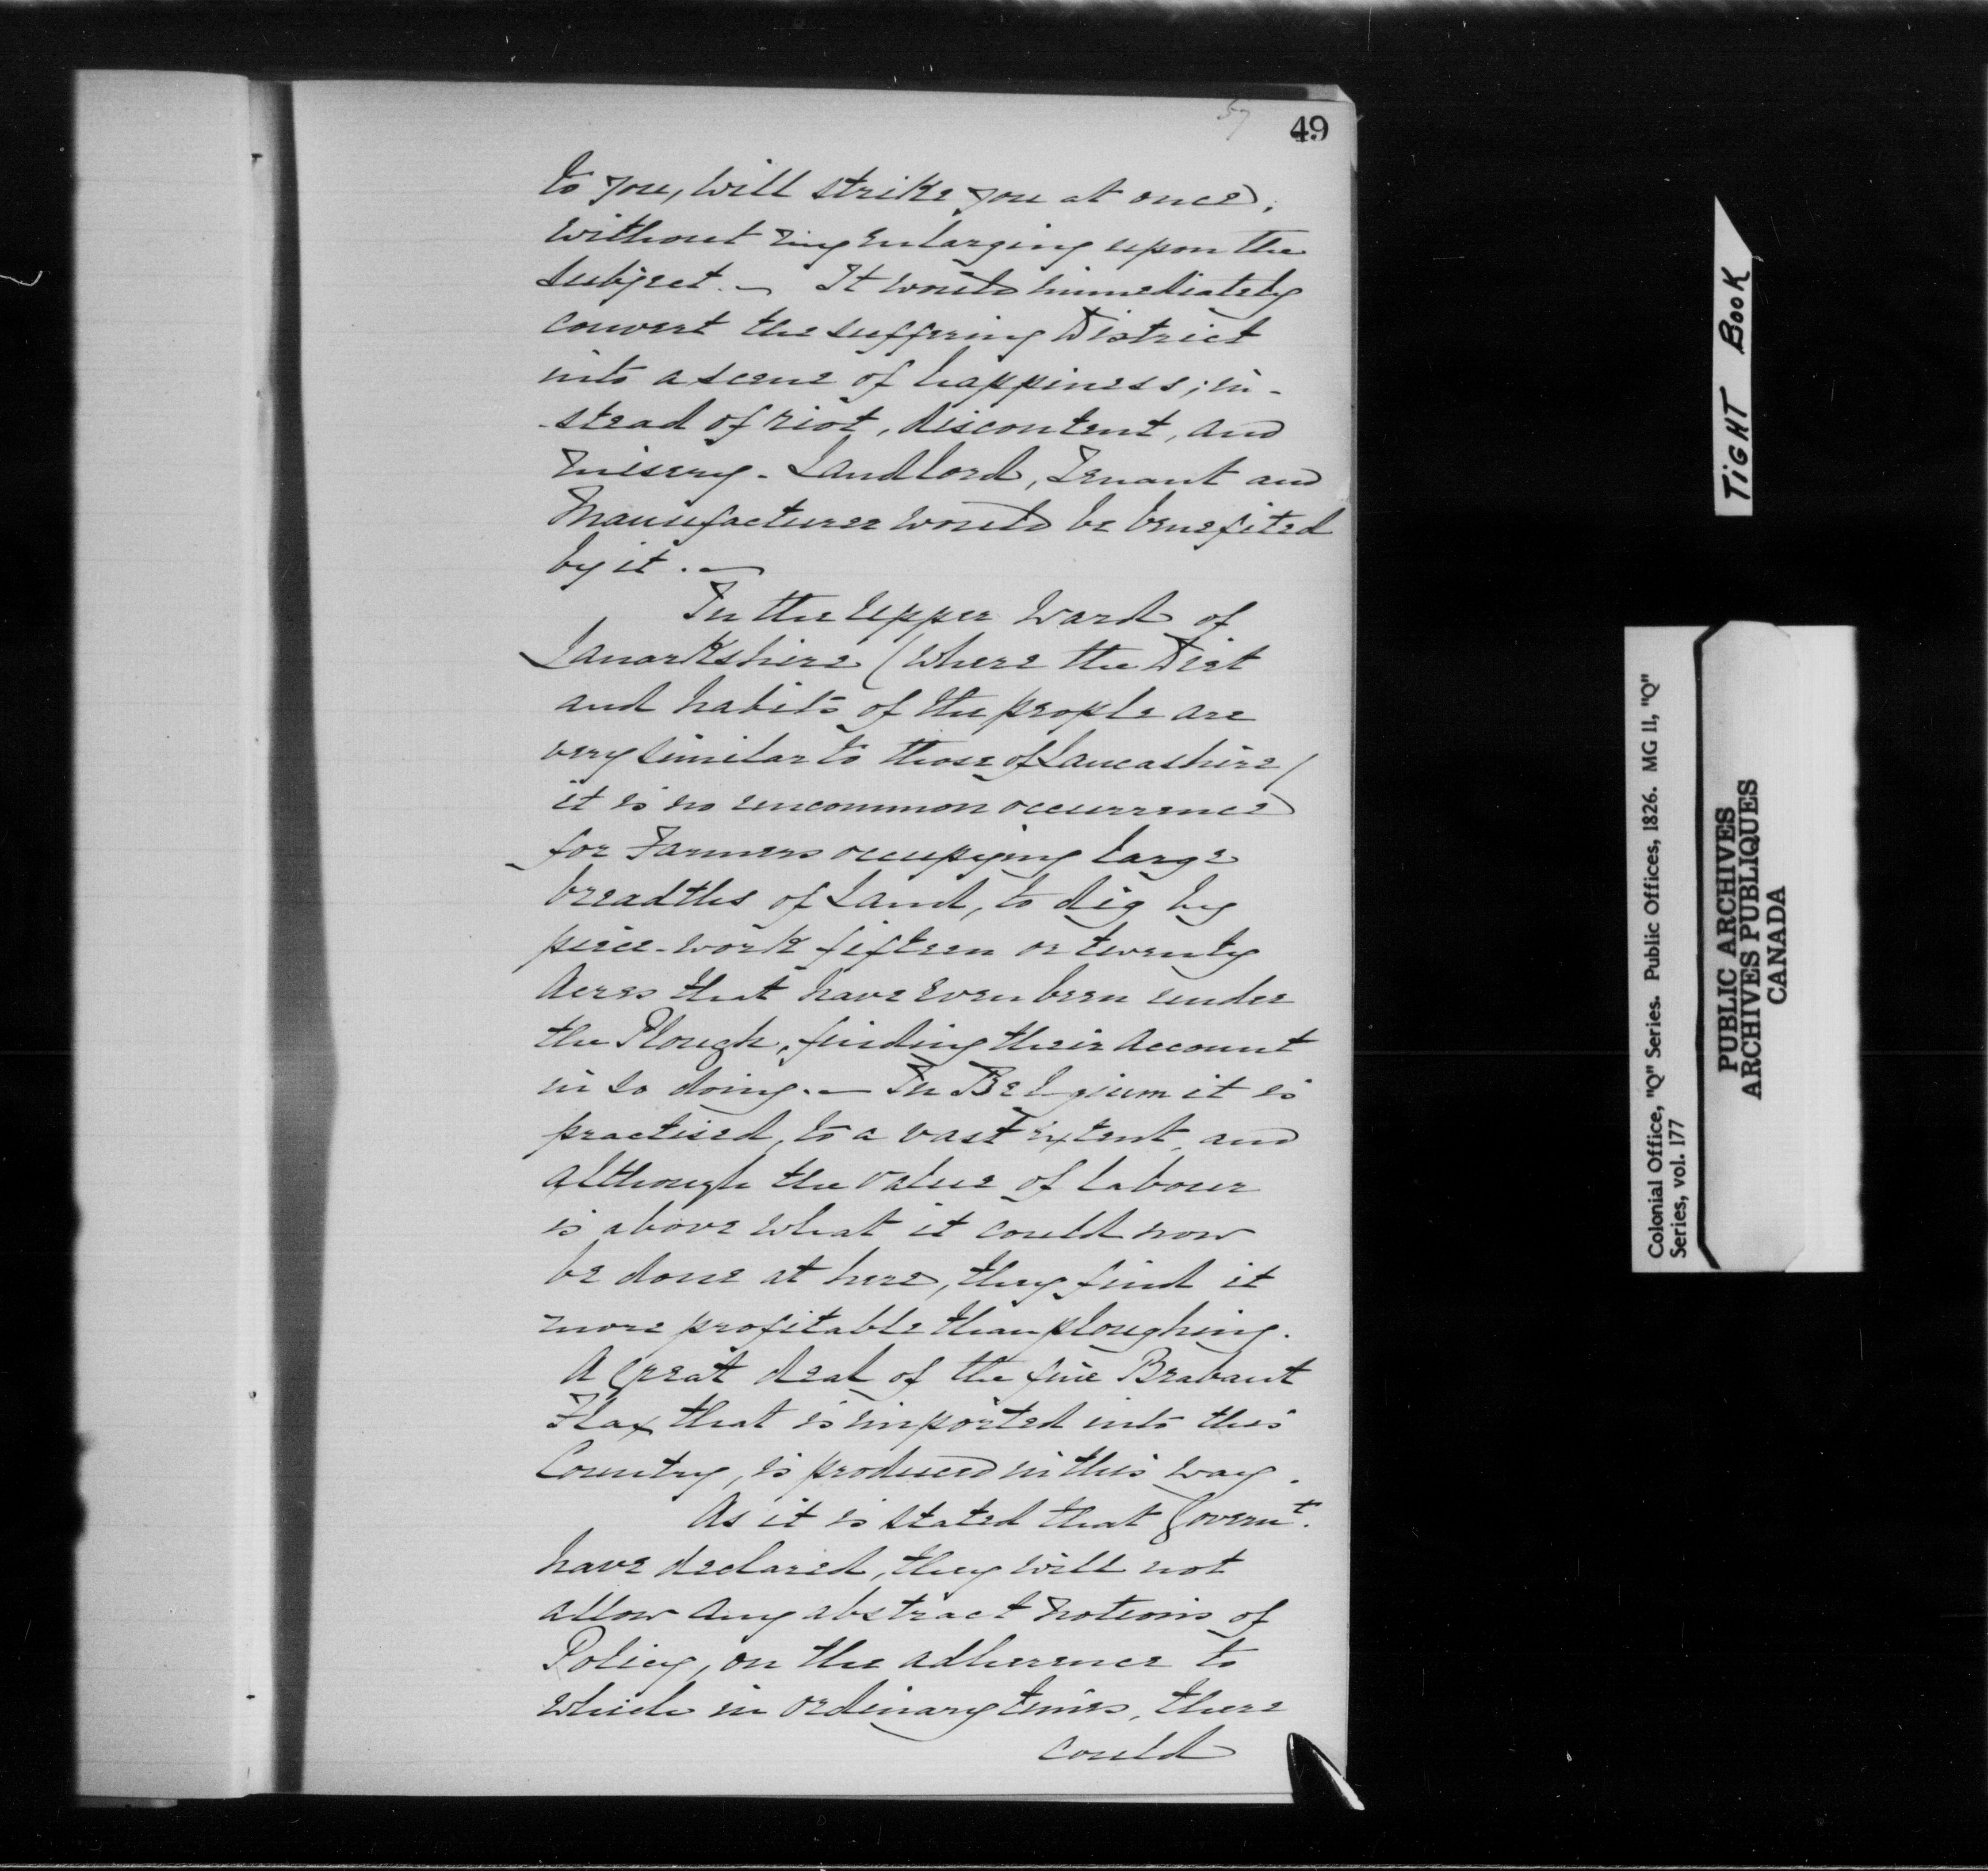 57
49
to you, will strike you at once,
without my enlarging upon the
subject. — It would immediately
convert the suffering District
into a scene of happiness; in-
-stead of riot, discontent, and
misery. Landlord, Tenant and
Manufacturer would be benefited
by it. —
In the Upper Ward of
Lanarkshire (where the Diet
and habits of the people are
very similar to those of Lancashire)
it is no uncommon occurrence
for Farmers occupying large
breadths of Land, to dig by
piece-work fifteen or twenty
Acres that have even been under
the Plough, finding their Account
in so doing. — In Belgium it is
practised, to a vast extent, and
although the value of labour
is above what it could now
be done at here, they find it
more profitable than ploughing.
A great deal of the fine Brabant
Flax that is imported into this
Country, is produced in this way.
As it is stated that Governt.
have declared, they will not
allow any abstract notions of
Policy, on the adherence to
which in ordinary times, there
could
TIGHT BOOK
Colonial Office, "Q" Series. Public Offices, 1826. MG 11, "Q"
Series, vol. 177
PUBLIC ARCHIVES
ARCHIVES PUBLIQUES
CANADA